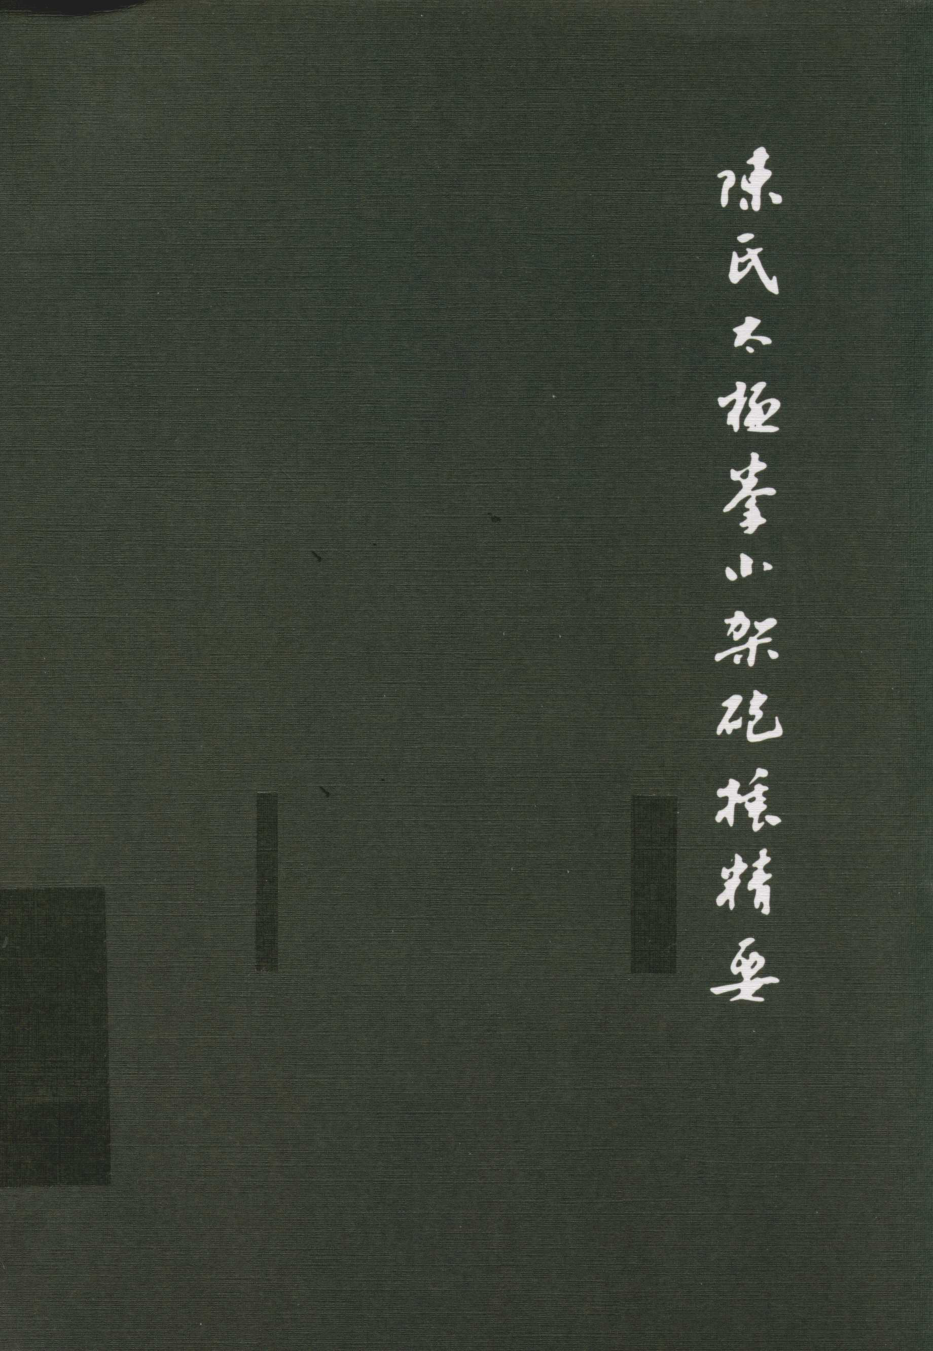 陳氏太極拳小架砲捶精要